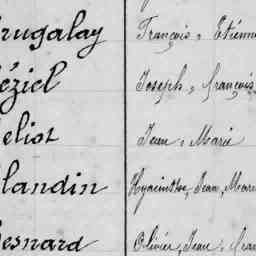 rugalay François, Étienne
éziel Joseph, françois
eliot Jean, Marie
landin Hyacinthe, Jean, Marie
esnard Olivier, Jean, fran